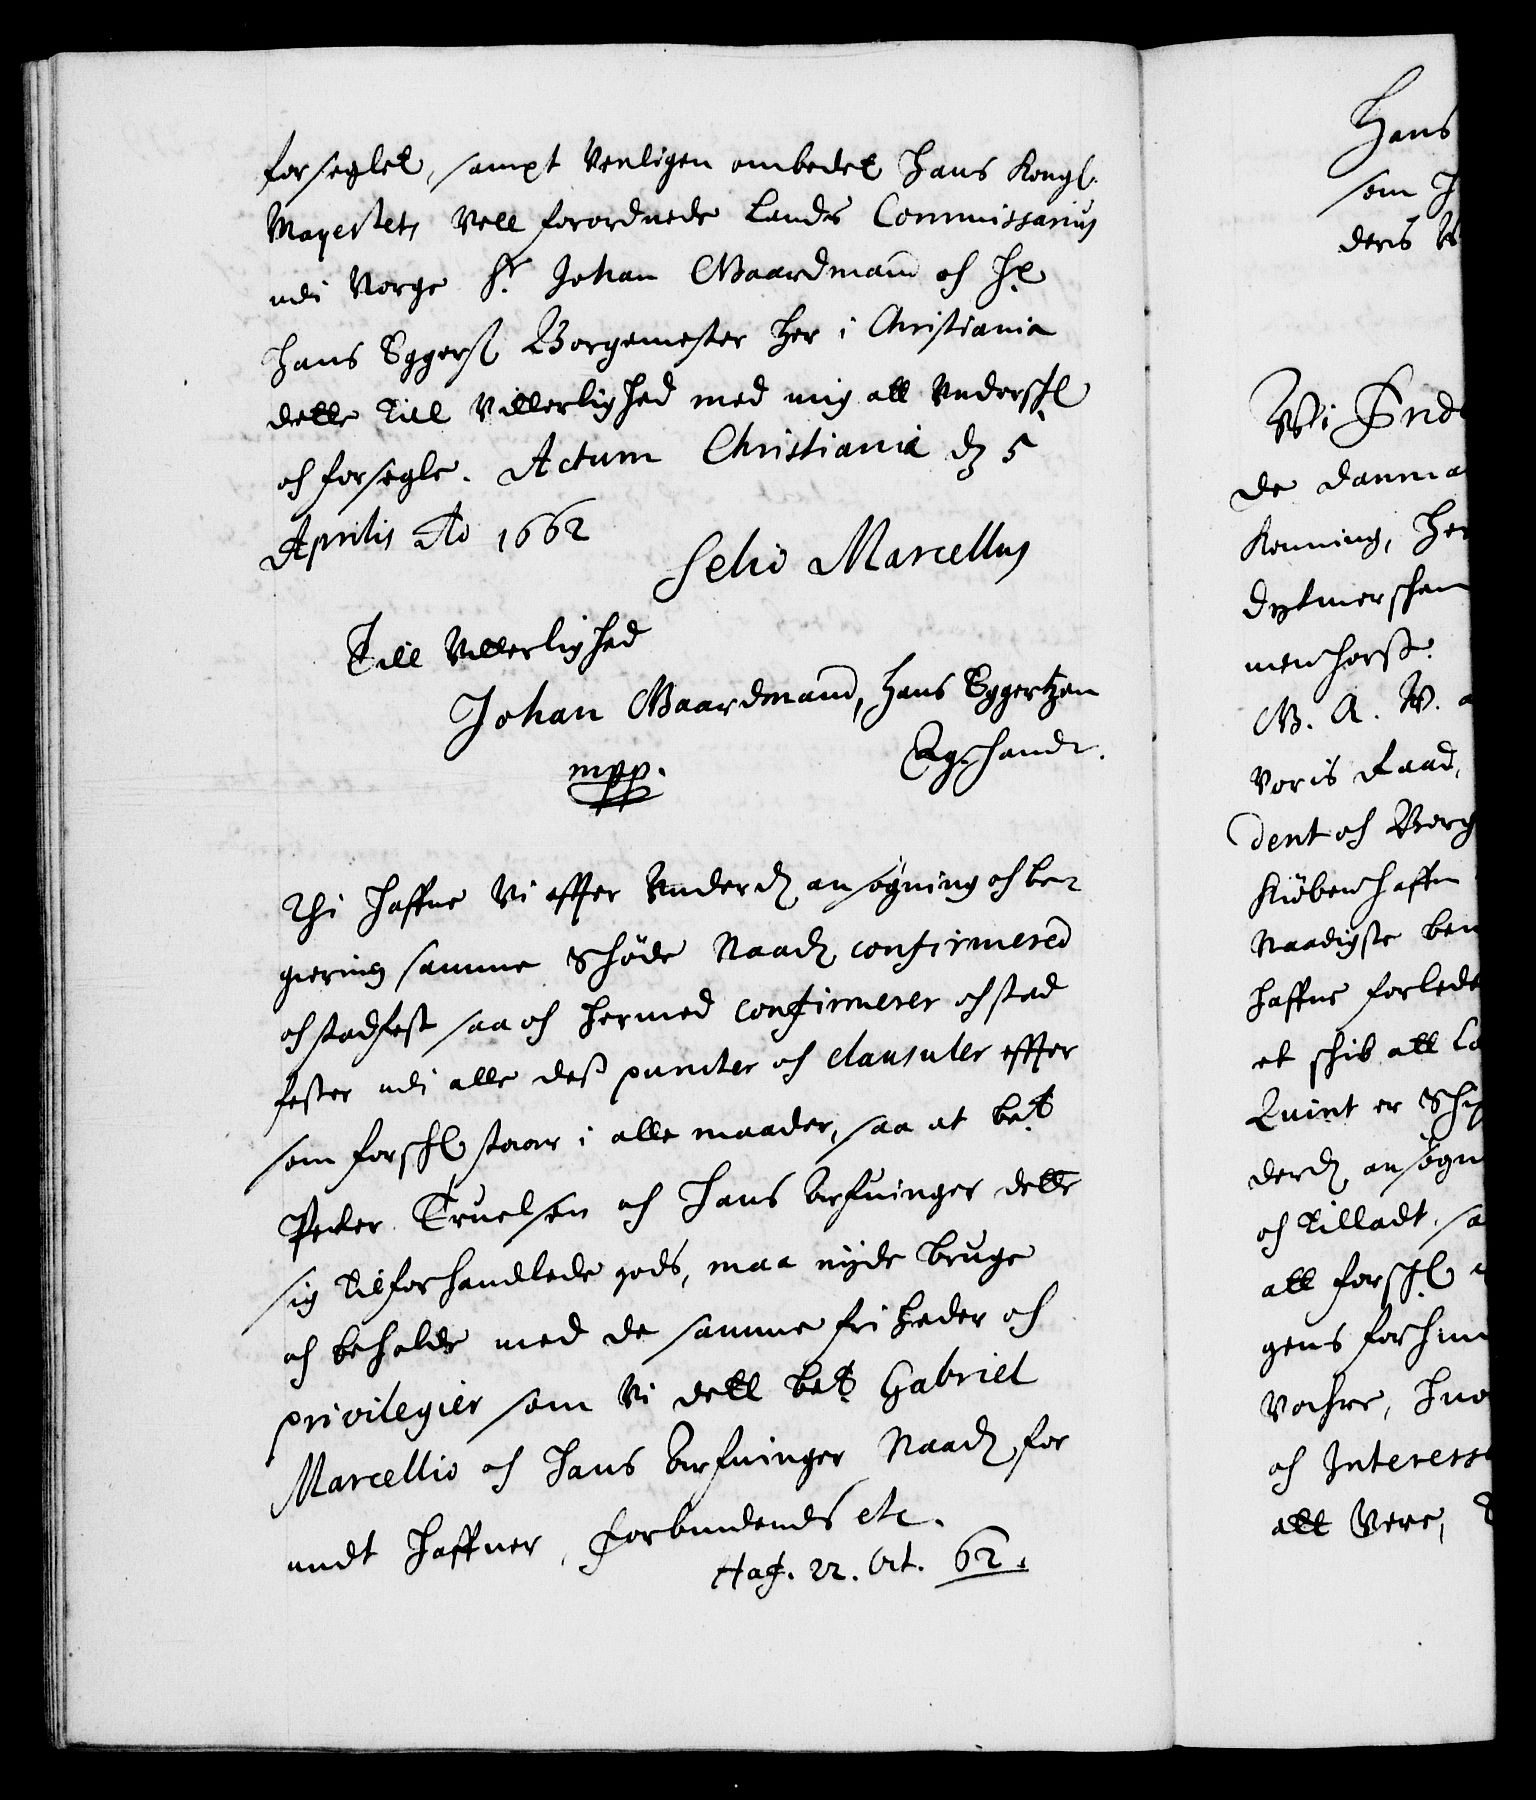 forseglet, sampt Venligen ombedet Hans Kongl.
Mayestets Vell forordnede Lands Commissarius
udi Norge Hr. Johan Maardmand och Hr
Hans Eggerß Borgemester her i Christiania
dette till Vitterlighed med mig att Underschr
och forsegle. Actum Christiania dz 5
Aprilis Ao 1662
Selio Marcellus
Till Vitterlighed
Johan Maardmand, Hans Eggertzen
mpp. Egh handt.
Thi haffue Vi effter Underd ansøgning och be-
giering samme Schøde Naad confirmered
och stadfest saa och hermed confirmerer och stad
fester udi alle dess puncter och clausuler effter
som forschr staar i alle maader, saa at bet
Peder Truelsen och Hans Arfuinger dette
sig tilforhandlede gods, maa nyde bruge
och beholde med de samme friheder och
privilegier som Vi dett bet Gabriel
Marcellio och Hans Arfuinger Naad for
undt haffuer, Forbudends etc.
Haf. 22. Oct. 62.
Hans
som
deris
Wi Frid
de Danma
Konning, Her
Dytmerschen
menhorst.
G. A. W. a
Voris Raad,
dent och Borg
Kiöbenhaffn
Naadigste ben
haffue forlede
et schib att
Quint er Schip
derd ansøgn
och tilladt, sa
att forschr
gens forhin
Vochre,
och Interess
att Vere,